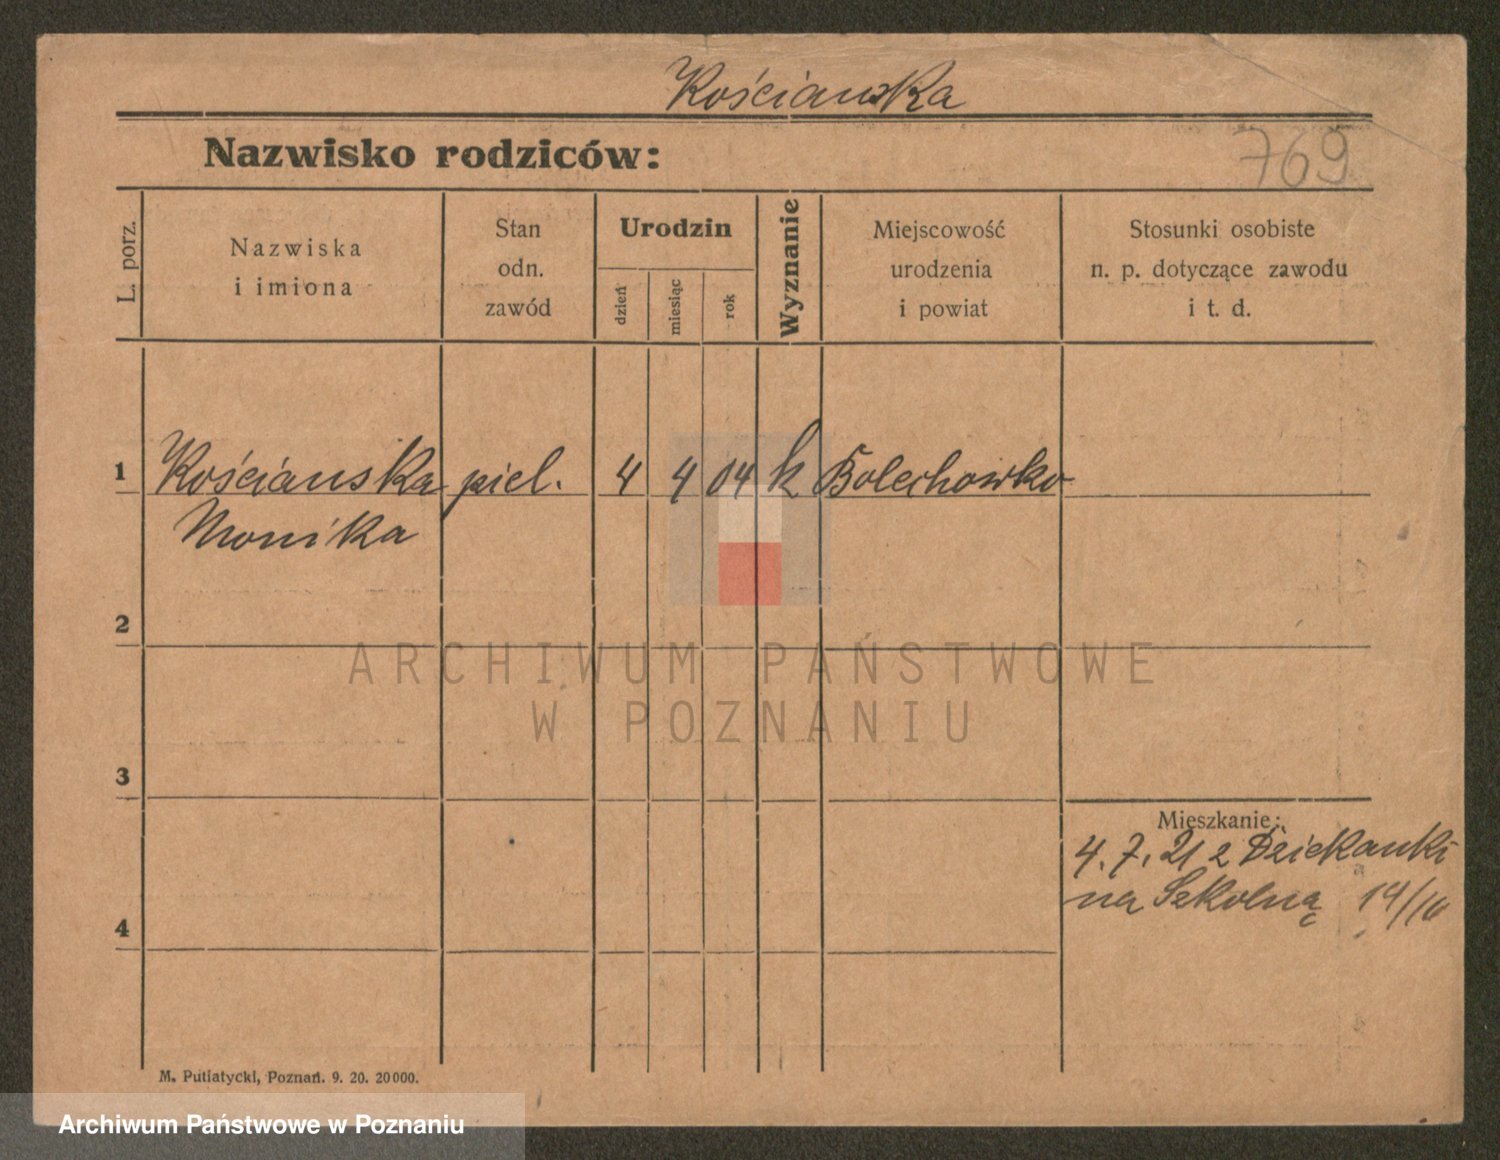 Kościanska
Nazwisko rodziców:
769
L. porz.
Nazwiska
i imiona
Stan
odn.
zawód
Urodzin
dzień
miesiąc
rok
Wyznanie
Miejscowość
urodzenia
i powiat
Stosunki osobiste
n. p. dotyczące zawodu
i t. d.
1 Kościanska piel. 4 4 04 k Bolechowko
Monika
2
ARCHIWUM PAŃSTWOWE
W POZNANIU
3
Mieszkanie:
4. 7. 21 z Dziekanki
na Szkolną
4
M. Putiatycki, Poznań. 9. 20. 20000.
Archiwum Państwowe w Poznaniu